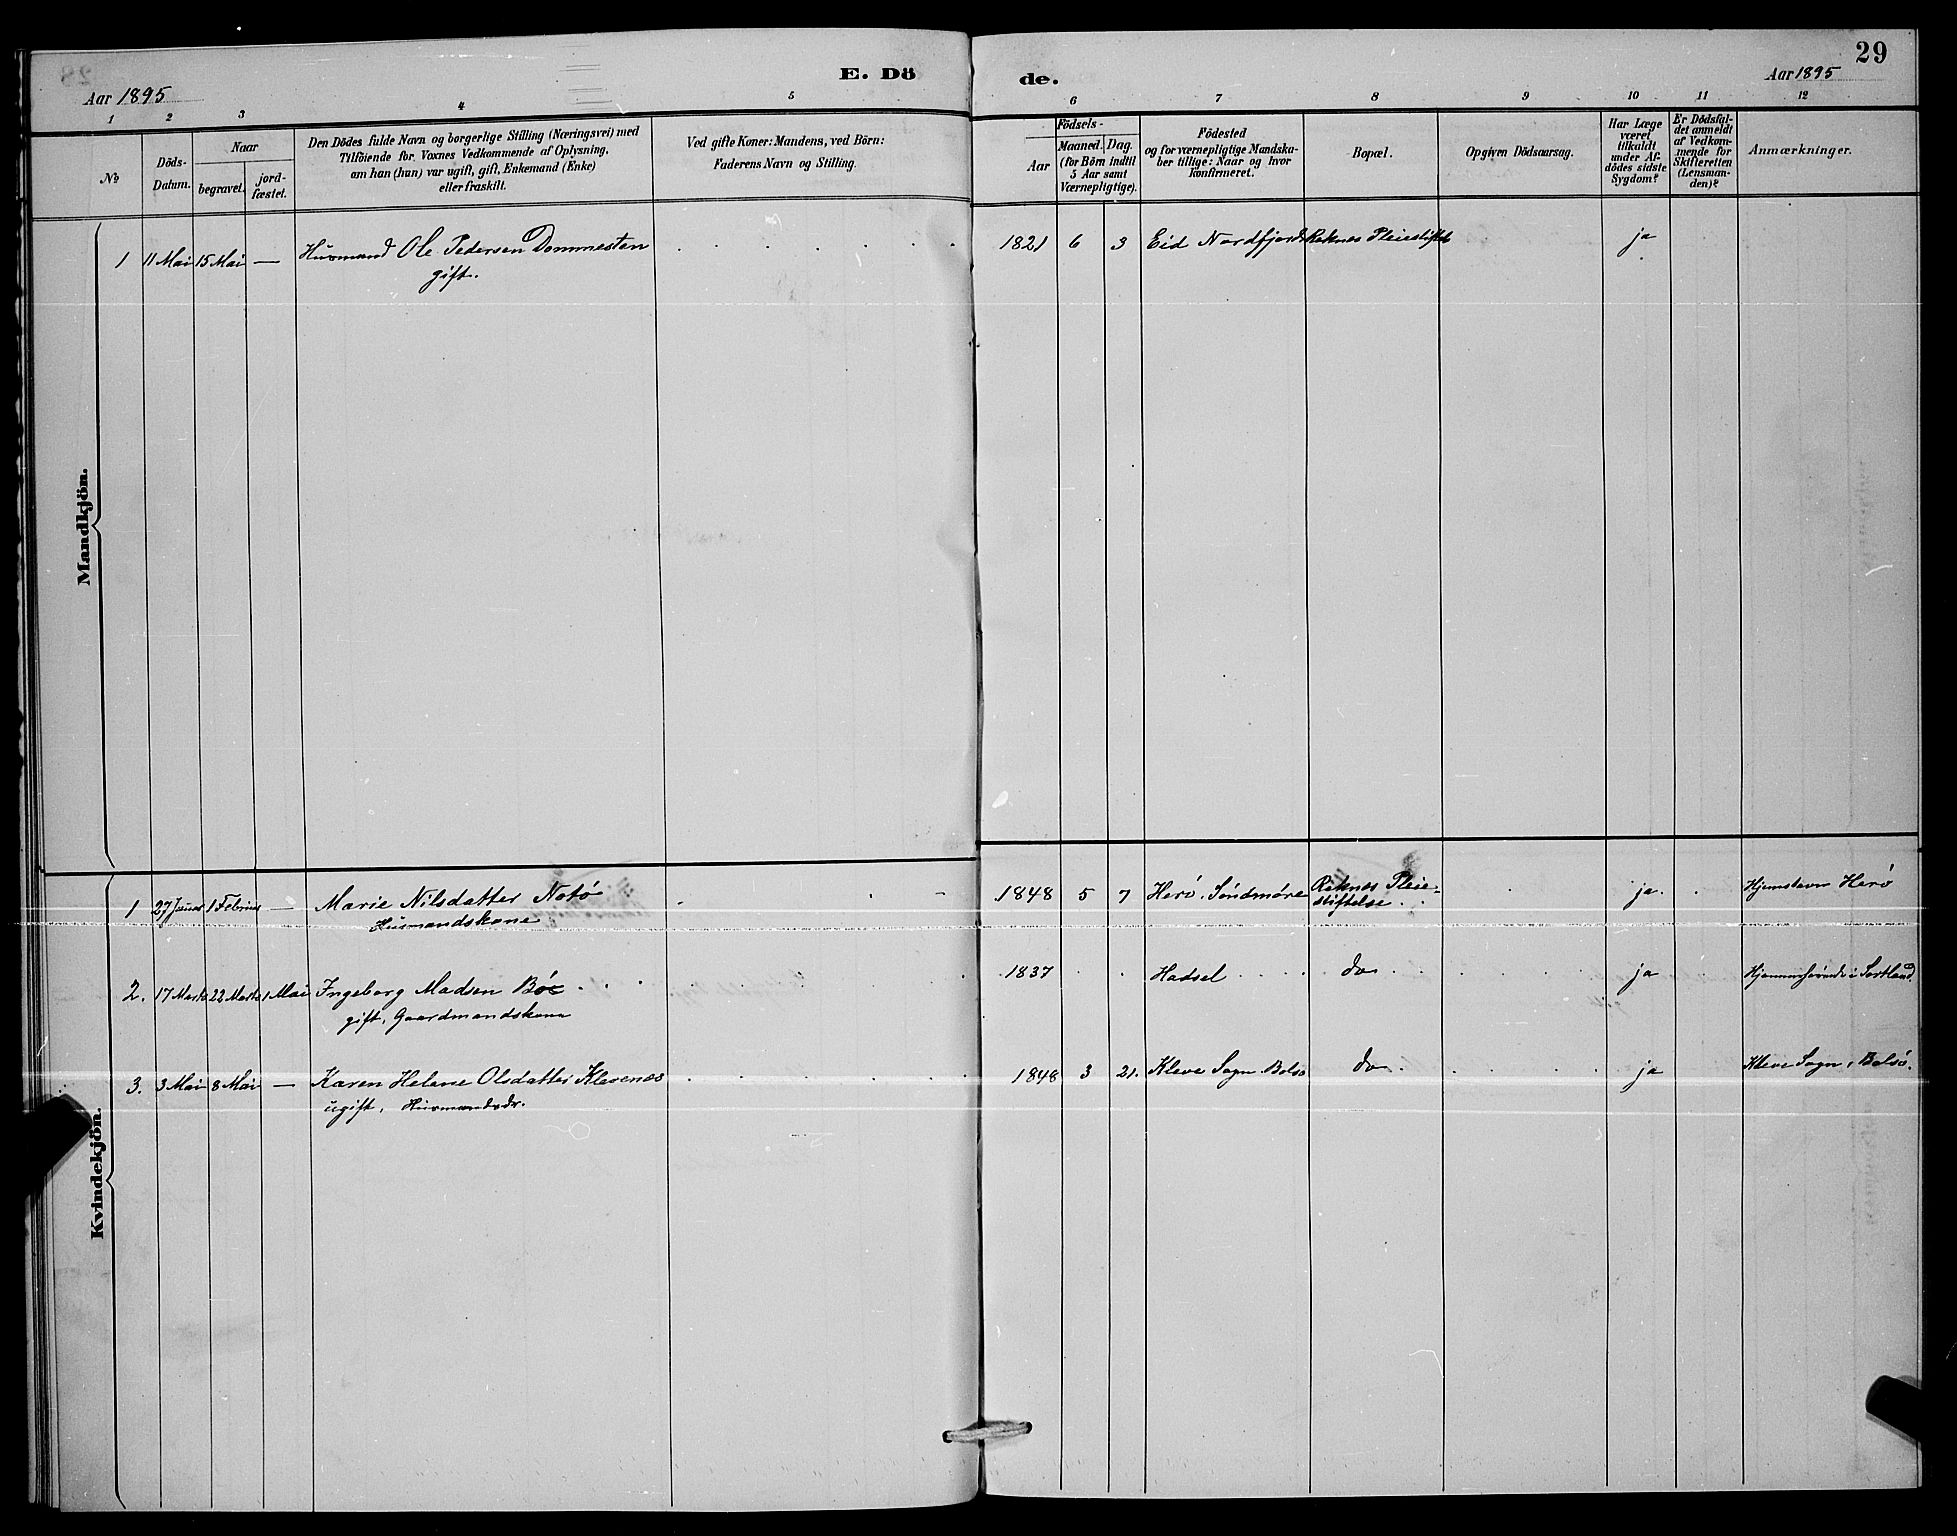 29
Aar 1895
E. Dö
de.
Aar 1895
1 2 3 4 5 6 7 8 9 10 11 12
№
Döds-
Datum.
Naar
begravet.
jord-
fæstet.
Den Dödes fulde Navn og borgerlige Stilling (Næringsvei) med
Tilföiende for Voxnes Vedkommende af Oplysning,
om han (hun) var ugift, gift, Enkemand (Enke)
eller fraskilt.
Ved gifte Koner: Mandens, ved Börn:
Faderens Navn og Stilling.
Födsels-
Aar
Maaned. Dag.
(for Börn indtil
5 Aar samt
Værnepligtige).
Födested
og for værnepligtige Mandska-
ber tillige: Naar og hvor
konfirmeret.
Bopæl.
Opgiven Dödsaarsag.
Har Læge
været
tilkaldt
under Af-
dödes sidste
Sygdom?
Er Dödsfal-
det anmeldt
af Vedkom-
mende for
Skifteretten
(Lensman-
den)?
Anmærkninger.
Mandkjön.
1 11 Mai 15 Mai — Husmand Ole Pedersen Dommesten 1821 6 3 Eid Nordfjord Reknes Pleiestift ja
gift.
Kvindekjön.
1 27 Januar 1 Februar — Marie Nilsdatter Notö 1848 5 7 Herö. Söndmöre Reknes Pleie- ja. Hjemstavn Herö
Husmandskone stiftelse
2. 17 Marts 22 Marts 1 Mai Ingeborg Madsen Böe 1837 Hadsel do ja Sortland.
gift, Gaardmandskone
3. 3 Mai 8 Mai — Karen Helene Olsdatter Klevenes 1848 3 21. Kleve Sogn Bolsö do ja Kleve Sogn, Bolsö.
ugift, Husmandsdr.